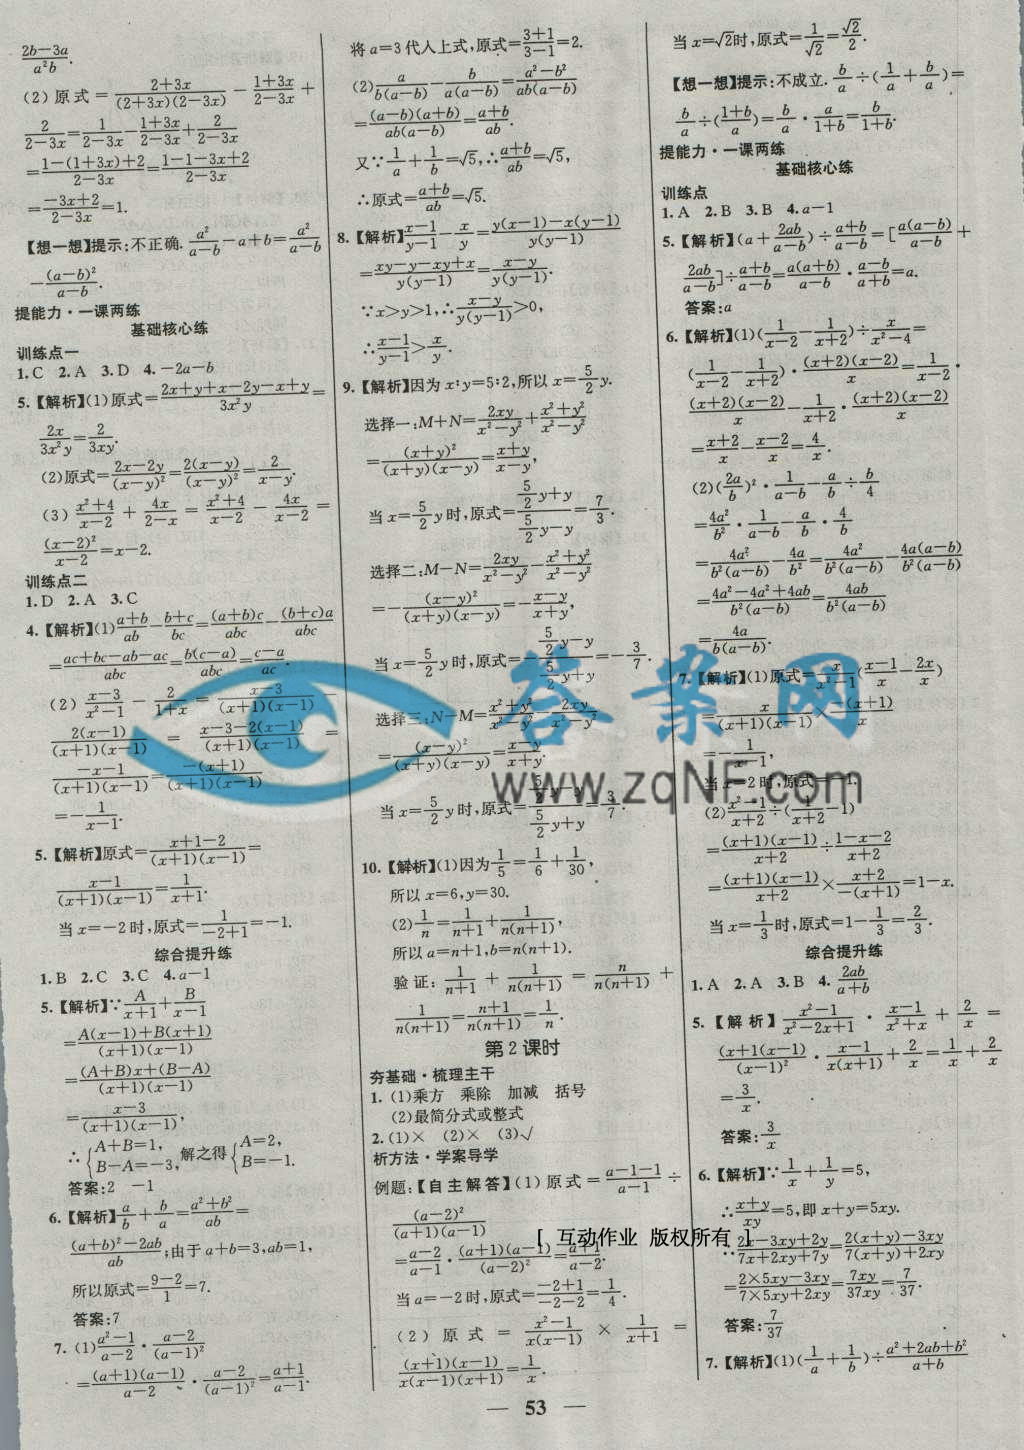 $\frac{2b-3a}{a^2b}$.
(2)原式=$\frac{2+3x}{(2+3x)(2-3x)}-\frac{1+3x}{2-3x}+$
$\frac{2}{2-3x}=\frac{1}{2-3x}-\frac{1+3x}{2-3x}+\frac{2}{2-3x}$
$=\frac{1-(1+3x)+2}{2-3x}=\frac{1-1-3x+2}{2-3x}$
$=\frac{-3x+2}{2-3x}=1.$
【想一想】提示:不正确.$\frac{a^2}{a-b}-a+b=\frac{a^2}{a-b}$
$-\frac{(a-b)^2}{a-b}$.
提能力·一课两练
基础核心练
训练点一
1.C 2.A 3.D 4.-2a-b
5.【解析】(1)原式=$\frac{2x+y+x-2y-x+y}{3x^2y}=$
$\frac{2x}{3x^2y}=\frac{2}{3xy}$.
(2)原式=$\frac{2x-2y}{(x-y)^2}=\frac{2(x-y)}{(x-y)^2}=\frac{2}{x-y}$.
(3)$\frac{x^2+4}{x-2}+\frac{4x}{2-x}=\frac{x^2+4}{x-2}-\frac{4x}{x-2}=$
$\frac{(x-2)^2}{x-2}=x-2.$
训练点二
1.D 2.A 3.C
4.【解析】(1)$\frac{a+b}{ab}-\frac{b+c}{bc}=\frac{(a+b)c}{abc}-\frac{(b+c)a}{abc}$
$=\frac{ac+bc-ab-ac}{abc}=\frac{b(c-a)}{abc}=\frac{c-a}{ac}$.
(2)$\frac{x-3}{x^2-1}-\frac{2}{1+x}=\frac{x-3}{(x+1)(x-1)}-$
$\frac{2(x-1)}{(x+1)(x-1)}=\frac{x-3-2(x-1)}{(x+1)(x-1)}=$
$\frac{-x-1}{(x+1)(x-1)}=\frac{-(x+1)}{(x+1)(x-1)}$
$=-\frac{1}{x-1}$.
5.【解析】原式=$\frac{x+1-2}{(x+1)(x-1)}=$
$\frac{x-1}{(x+1)(x-1)}=\frac{1}{x+1}$.
当x=-2时,原式=$\frac{1}{-2+1}=-1.$
综合提升练
1.B 2.C 3.C 4.a-1
5.【解析】∵$\frac{A}{x+1}+\frac{B}{x-1}$
$=\frac{A(x-1)+B(x+1)}{(x+1)(x-1)}$
$=\frac{(A+B)x+(B-A)}{(x+1)(x-1)}$
$=\frac{x-3}{(x+1)(x-1)}$,
∴$\begin{cases}A+B=1,\\B-A=-3,\end{cases}$解之得$\begin{cases}A=2,\\B=-1.\end{cases}$
答案:2 -1
6.【解析】$\frac{a}{b}+\frac{b}{a}=\frac{a^2+b^2}{ab}=$
$\frac{(a+b)^2-2ab}{ab}$;由于a+b=3,ab=1,
所以原式=$\frac{9-2}{1}=7.$
答案:7
7.(1)$\frac{a^2-1}{a-2}·\frac{a-2}{(a-1)^2}$
$=\frac{(a+1)(a-1)}{a-2}·\frac{a-2}{(a-1)^2}=\frac{a+1}{a-1}$.
将a=3代入上式,原式=$\frac{3+1}{3-1}=2.$
(2)$\frac{a}{b(a-b)}-\frac{b}{a(a-b)}=\frac{a^2-b^2}{ab(a-b)}$
$=\frac{(a-b)(a+b)}{ab(a-b)}=\frac{a+b}{ab}$.
又∵$\frac{1}{a}+\frac{1}{b}=\sqrt{5}$,∴$\frac{a+b}{ab}=\sqrt{5}$,
∴原式=$\frac{a+b}{ab}=\sqrt{5}$.
8.【解析】$\frac{x-1}{y-1}-\frac{x}{y}=\frac{y(x-1)-x(y-1)}{y(y-1)}$
$=\frac{xy-y-xy+x}{y(y-1)}=\frac{x-y}{y(y-1)}$.
∵x>y>1,∴$\frac{x-y}{y(y-1)}>0$,
∴$\frac{x-1}{y-1}>\frac{x}{y}$.
9.【解析】因为x∶y=5∶2,所以x=$\frac{5}{2}$y.
选择一:M+N=$\frac{2xy}{x^2-y^2}+\frac{x^2+y^2}{x^2-y^2}$
$=\frac{(x+y)^2}{(x+y)(x-y)}=\frac{x+y}{x-y}$,
当x=$\frac{5}{2}$y时,原式=$\frac{\frac{5}{2}y+y}{\frac{5}{2}y-y}=\frac{7}{3}$.
选择二:M-N=$\frac{2xy}{x^2-y^2}-\frac{x^2+y^2}{x^2-y^2}$
$=-\frac{(x-y)^2}{(x+y)(x-y)}=-\frac{x-y}{x+y}$,
当x=$\frac{5}{2}$y时,原式=$-\frac{\frac{5}{2}y-y}{\frac{5}{2}y+y}=-\frac{3}{7}$.
选择三:N-M=$\frac{x^2+y^2}{x^2-y^2}-\frac{2xy}{x^2-y^2}$
$=\frac{(x-y)^2}{(x+y)(x-y)}=\frac{x-y}{x+y}$.
当x=$\frac{5}{2}$y时,原式=$\frac{\frac{5}{2}y-y}{\frac{5}{2}y+y}=\frac{3}{7}$.
10.【解析】(1)因为$\frac{1}{5}=\frac{1}{6}+\frac{1}{30}$,
所以x=6,y=30.
(2)$\frac{1}{n}=\frac{1}{n+1}+\frac{1}{n(n+1)}$,
所以a=n+1,b=n(n+1).
验证:$\frac{1}{n+1}+\frac{1}{n(n+1)}=\frac{n}{n(n+1)}+$
$\frac{1}{n(n+1)}=\frac{n+1}{n(n+1)}=\frac{1}{n}$.
第2课时
夯基础·梳理主干
1.(1)乘方 乘除 加减 括号
(2)最简分式或整式
2.(1)× (2)× (3)√
析方法·学案导学
例题:【自主解答】(1)原式=$\frac{a-1-1}{a-1}÷$
$\frac{(a-2)^2}{(a+1)(a-1)}$
$=\frac{a-2}{a-1}·\frac{(a+1)(a-1)}{(a-2)^2}=\frac{a+1}{a-2}$.
当a=-2时,原式=$\frac{-2+1}{-2-2}=\frac{1}{4}$.
(2)原式=$\frac{x^2-1}{x(x-1)}×\frac{1}{x+1}=$
$\frac{(x+1)(x-1)}{x(x-1)(x+1)}=\frac{1}{x}$.
当x=$\sqrt{2}$时,原式=$\frac{1}{\sqrt{2}}=\frac{\sqrt{2}}{2}$.
【想一想】提示:不成立.$\frac{b}{a}÷(\frac{1}{a}+\frac{b}{a})=$
$\frac{b}{a}÷(\frac{1+b}{a})=\frac{b}{a}·\frac{a}{1+b}=\frac{b}{1+b}$.
提能力·一课两练
基础核心练
训练点
1.A 2.B 3.B 4.a-1
5.【解析】$(a+\frac{2ab}{a-b})÷\frac{a+b}{a-b}=[\frac{a(a-b)}{a-b}+$
$\frac{2ab}{a-b}]÷\frac{a+b}{a-b}=\frac{a(a+b)}{a-b}·\frac{a-b}{a+b}=a.$
答案:a
6.【解析】(1)$(\frac{1}{x-2}-\frac{1}{x+2})÷\frac{x}{x^2-4}=$
$(\frac{1}{x-2}-\frac{1}{x+2})·\frac{(x+2)(x-2)}{x}=\frac{1}{x-2}·$
$\frac{(x+2)(x-2)}{x}-\frac{1}{x+2}·\frac{(x+2)(x-2)}{x}$
$=\frac{x+2}{x}-\frac{x-2}{x}=\frac{4}{x}$.
(2)$(\frac{2a}{b})^2·\frac{1}{a-b}-\frac{a}{b}÷\frac{b}{4}$
$=\frac{4a^2}{b^2}·\frac{1}{a-b}-\frac{a}{b}·\frac{4}{b}$
$=\frac{4a^2}{b^2(a-b)}-\frac{4a}{b^2}=\frac{4a^2}{b^2(a-b)}-\frac{4a(a-b)}{b^2(a-b)}$
$=\frac{4a^2-4a^2+4ab}{b^2(a-b)}=\frac{4ab}{b^2(a-b)}$
$=\frac{4a}{b(a-b)}$.
7.【解析】(1)原式=$\frac{x}{x^2-1}(\frac{x-1}{x}-\frac{2x}{x})$
$=\frac{x}{(x+1)(x-1)}×\frac{-(x+1)}{x}$
$=-\frac{1}{x-1}$,
当x=2时,原式=-1.
(2)$\frac{x^2-1}{x+2}÷(\frac{1}{x+2}-1)$
$=\frac{(x+1)(x-1)}{x+2}÷\frac{1-x-2}{x+2}$
$=\frac{(x+1)(x-1)}{x+2}×\frac{x+2}{-(x+1)}=1-x.$
当x=$\frac{1}{3}$时,原式=$1-\frac{1}{3}=\frac{2}{3}$.
综合提升练
1.A 2.A 3.B 4.$\frac{2ab}{a+b}$
5.【解析】$\frac{x^2-1}{x^2-2x+1}·\frac{x-1}{x^2+x}+\frac{2}{x}=$
$\frac{(x+1(x-1)}{(x-1)^2}·\frac{x-1}{x(x+1)}+\frac{2}{x}=\frac{1}{x}+\frac{2}{x}$
$=\frac{3}{x}$.
答案:$\frac{3}{x}$
6.【解析】∵$\frac{1}{x}+\frac{1}{y}=5$,
∴$\frac{x+y}{xy}=5$,即x+y=5xy.
∴$\frac{2x-3xy+2y}{7x+2xy+7y}=\frac{2(x+y)-3xy}{7(x+y)+2xy}$
$=\frac{2×5xy-3xy}{7×5xy+2xy}=\frac{7xy}{37xy}=\frac{7}{37}$.
答案:$\frac{7}{37}$
7.【解析】(1)$(\frac{1}{a}+\frac{1}{b})÷\frac{a^2+2ab+b^2}{a+b}$
答案网
www.zqNF.com
[ 互动作业 版权所有 ]
— 53 —